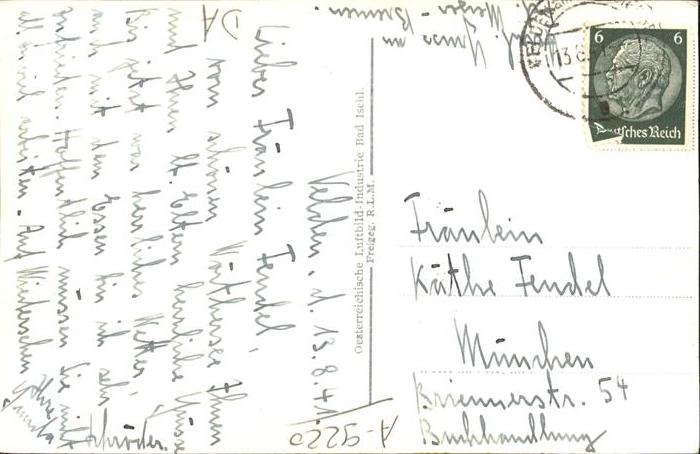 Velden, d. 13.8.41.
Liebes Fräulein Fendel,
vom schönen Wörthersee Ihnen
und Ihren lb. Eltern herzliche Grüsse
Bis jetzt war herrliches Wetter,
auch mit dem Essen bin ich sehr
zufrieden. Hoffentlich müssen Sie nicht
all zuviel arbeiten. Auf Wiedersehen
Schröder.
DA
A-9220
Oesterreichische Luftbild-Industrie Bad Ischl.
Freigeg. R.L.M.
6 6
Deutsches Reich
13.8.
Fräulein
Käthe Fendel
München
Briennerstr. 54
Buchhandlung